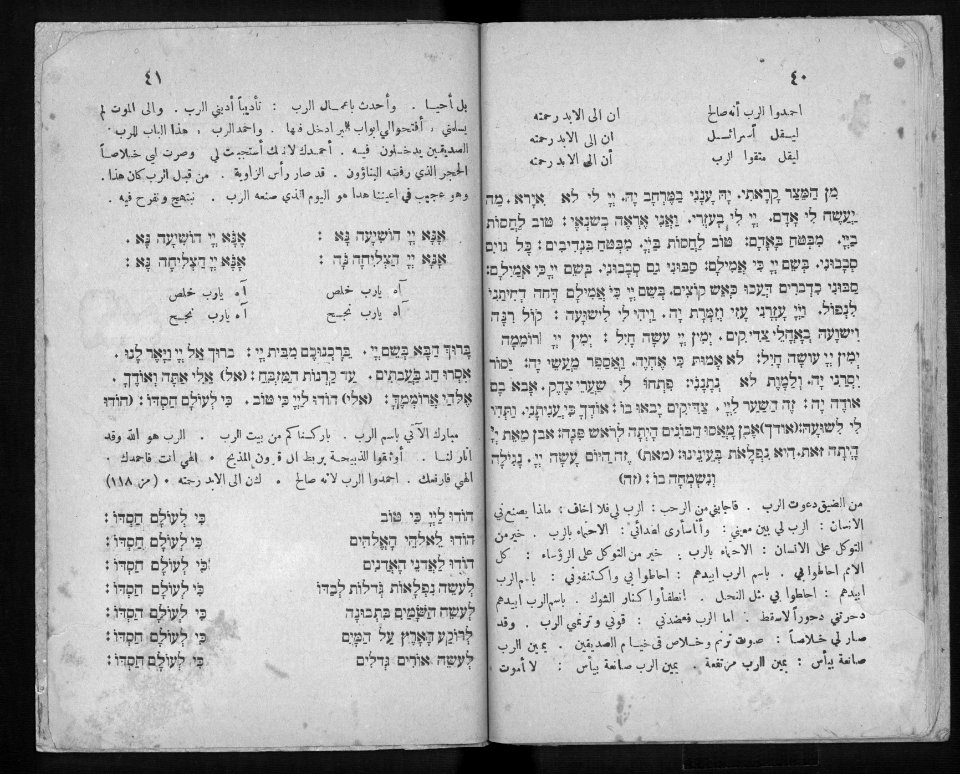 ٤٠
احمدوا الرب أنه صالح ان الى الابد رحمته
ليقل اسرائيل ان الى الابد رحمته
ليقل متقوا الرب أن الى الابد رحمته
מִן הַמֵּצַר קָרָאתִי. יָהּ עָנָנִי בַמֶּרְחָב יָהּ. יְיָ לִי לֹא אִירָא. מַה
יַּעֲשֶׂה לִי אָדָם. יְיָ לִי בְּעֹזְרָי. וַאֲנִי אֶרְאֶה בְשֹׂנְאָי: טוֹב לַחֲסוֹת
בַּיְיָ. מִבְּטֹחַ בָּאָדָם: טוֹב לַחֲסוֹת בַּיְיָ. מִבְּטֹחַ בִּנְדִיבִים: כָּל גּוֹיִם
סְבָבוּנִי. בְּשֵׁם יְיָ כִּי אֲמִילַם: סַבּוּנִי גַם סְבָבוּנִי. בְּשֵׁם יְיָ כִּי אֲמִילַם:
סַבּוּנִי כִדְבֹרִים דֹּעֲכוּ כְּאֵשׁ קוֹצִים. בְּשֵׁם יְיָ כִּי אֲמִילַם דָּחֹה דְחִיתַנִי
לִנְפּוֹל. וַיְיָ עֲזָרָנִי עָזִּי וְזִמְרָת יָהּ. וַיְהִי לִי לִישׁוּעָה: קוֹל רִנָּה
וִישׁוּעָה בְּאָהֳלֵי צַדִּיקִים. יְמִין יְיָ עֹשָׂה חָיִל: יְמִין יְיָ רוֹמֵמָה
יְמִין יְיָ עוֹשָׂה חָיִל: לֹא אָמוּת כִּי אֶחְיֶה. וַאֲסַפֵּר מַעֲשֵׂי יָהּ: יַסּוֹר
יִסְּרַנִּי יָהּ. וְלַמָּוֶת לֹא נְתָנָנִי: פִּתְחוּ לִי שַׁעֲרֵי צֶדֶק. אָבֹא בָם
אוֹדֶה יָהּ: זֶה הַשַּׁעַר לַיְיָ. צַדִּיקִים יָבֹאוּ בוֹ: אוֹדְךָ כִּי עֲנִיתָנִי. וַתְּהִי
לִי לִשׁוּעָה: (אודך) אֶבֶן מָאֲסוּ הַבּוֹנִים הָיְתָה לְרֹאשׁ פִּנָּה: אבן מֵאֵת יְיָ
הָיְתָה זֹאת. הִיא נִפְלָאת בְּעֵינֵינוּ: (מאת) זֶה הַיּוֹם עָשָׂה יְיָ. נָגִילָה
וְנִשְׂמְחָה בוֹ: (זה)
من الضيق دعوت الرب . فاجابني من الرحب : الرب لي فلا اخاف : ماذا يصنع بي
الانسان : الرب لي بين معيني : وأنا سأرى اعدائي : الاحتماء بالرب . خير من
التوكل على الانسان : الاحتماء بالرب . خير من التوكل على الرؤساء : كل
الامم احاطوا بي . باسم الرب ابيدهم : احاطوا بي واكتنفوني : باسم الرب
ابيدهم : احاطوا بي مثل النحل . انطفأوا كنار الشوك . باسم الرب ابيدهم
دحرتني دحوراً لاسقط . اما الرب فعضدني : قوتي وترنمي الرب . وقد
صار لي خلاصاً : صوت ترنم وخلاص في خيام الصديقين . يمين الرب
صانعة ببأس : يمين الرب مرتفعة . يمين الرب صانعة ببأس : لا أموت
٤١
بل أحيا . وأحدث باعمال الرب : تأديباً أدبني الرب . والى الموت لم
يسلمني . أفتحوا لي أبواب البر ادخل فيها . واحمد الرب . هذا الباب للرب
الصديقين يدخلون فيه . أحمدك لانك أستجبت لي وصرت لي خلاصاً
الحجر الذي رفضه البناؤون . قد صار رأس الزاوية . من قبل الرب كان هذا .
وهو عجيب في اعيننا هذا هو اليوم الذي صنعه الرب . نبتهج ونفرح فيه .
אָנָּא יְיָ הוֹשִׁיעָה נָּא : אָנָּא יְיָ הוֹשִׁיעָה נָּא .
אָנָּא יְיָ הַצְלִיחָה נָּה : אָנָּא יְיָ הַצְלִיחָה נָּא :
آه يارب خلص آه يارب خلص
آه يارب نجح آه يارب نجح
בָּרוּךְ הַבָּא בְּשֵׁם יְיָ. בֵּרַכְנוּכֶם מִבֵּית יְיָ: ברוך אֵל יְיָ וַיָּאֶר לָנוּ.
אִסְרוּ חַג בַּעֲבֹתִים. עַד קַרְנוֹת הַמִּזְבֵּחַ: (אל) אֵלִי אַתָּה וְאוֹדֶךָּ.
אֱלֹהַי אֲרוֹמְמֶךָּ: (אלי) הוֹדוּ לַיְיָ כִּי טוֹב. כִּי לְעוֹלָם חַסְדּוֹ: (הודו
مبارك الآتي باسم الرب . باركناكم من بيت الرب . الرب هو الله وقد
انار لنا . أوثقوا الذبيحة بربط الى قرون المذبح . الهي انت فاحمدك .
الهي فارفعك . احمدوا الرب لانه صالح . لان الى الابد رحمته . (مز ١١٨)
הוֹדוּ לַיְיָ כִּי טוֹב כִּי לְעוֹלָם חַסְדּוֹ:
הוֹדוּ לֵאלֹהֵי הָאֱלֹהִים כִּי לְעוֹלָם חַסְדּוֹ:
הוֹדוּ לַאֲדֹנֵי הָאֲדֹנִים כִּי לְעוֹלָם חַסְדּוֹ:
לְעֹשֵׂה נִפְלָאוֹת גְּדֹלוֹת לְבַדּוֹ כִּי לְעוֹלָם חַסְדּוֹ:
לְעֹשֵׂה הַשָּׁמַיִם בִּתְבוּנָה כִּי לְעוֹלָם חַסְדּוֹ:
לְרוֹקַע הָאָרֶץ עַל הַמָּיִם כִּי לְעוֹלָם חַסְדּוֹ:
לְעֹשֵׂה אוֹרִים גְּדֹלִים כִּי לְעוֹלָם חַסְדּוֹ: